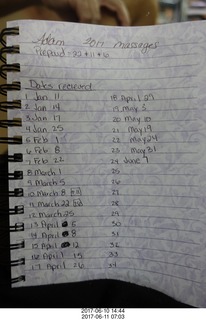 Adam 2017 massages
Prepaid = 22 + 11 + 6
Dates received
1 Jan 11
2 Jan 14
3 Jan 17
4 Jan 25
5 Feb 1
6 Feb 8
7 Feb 22
8 March 1
9 March 5
10 March 8
11 March 22
12 March 25
13 April 6
14 April 8
15 April 12
16 April 15
17 April 26
18 April 29
19 May 3
20 May 10
21 May 17
22 May 24
23 May 31
24 June 7
25
26
27
28
29
30
31
32
33
34
2017-06-10 14:44
2017-06-11 07:03